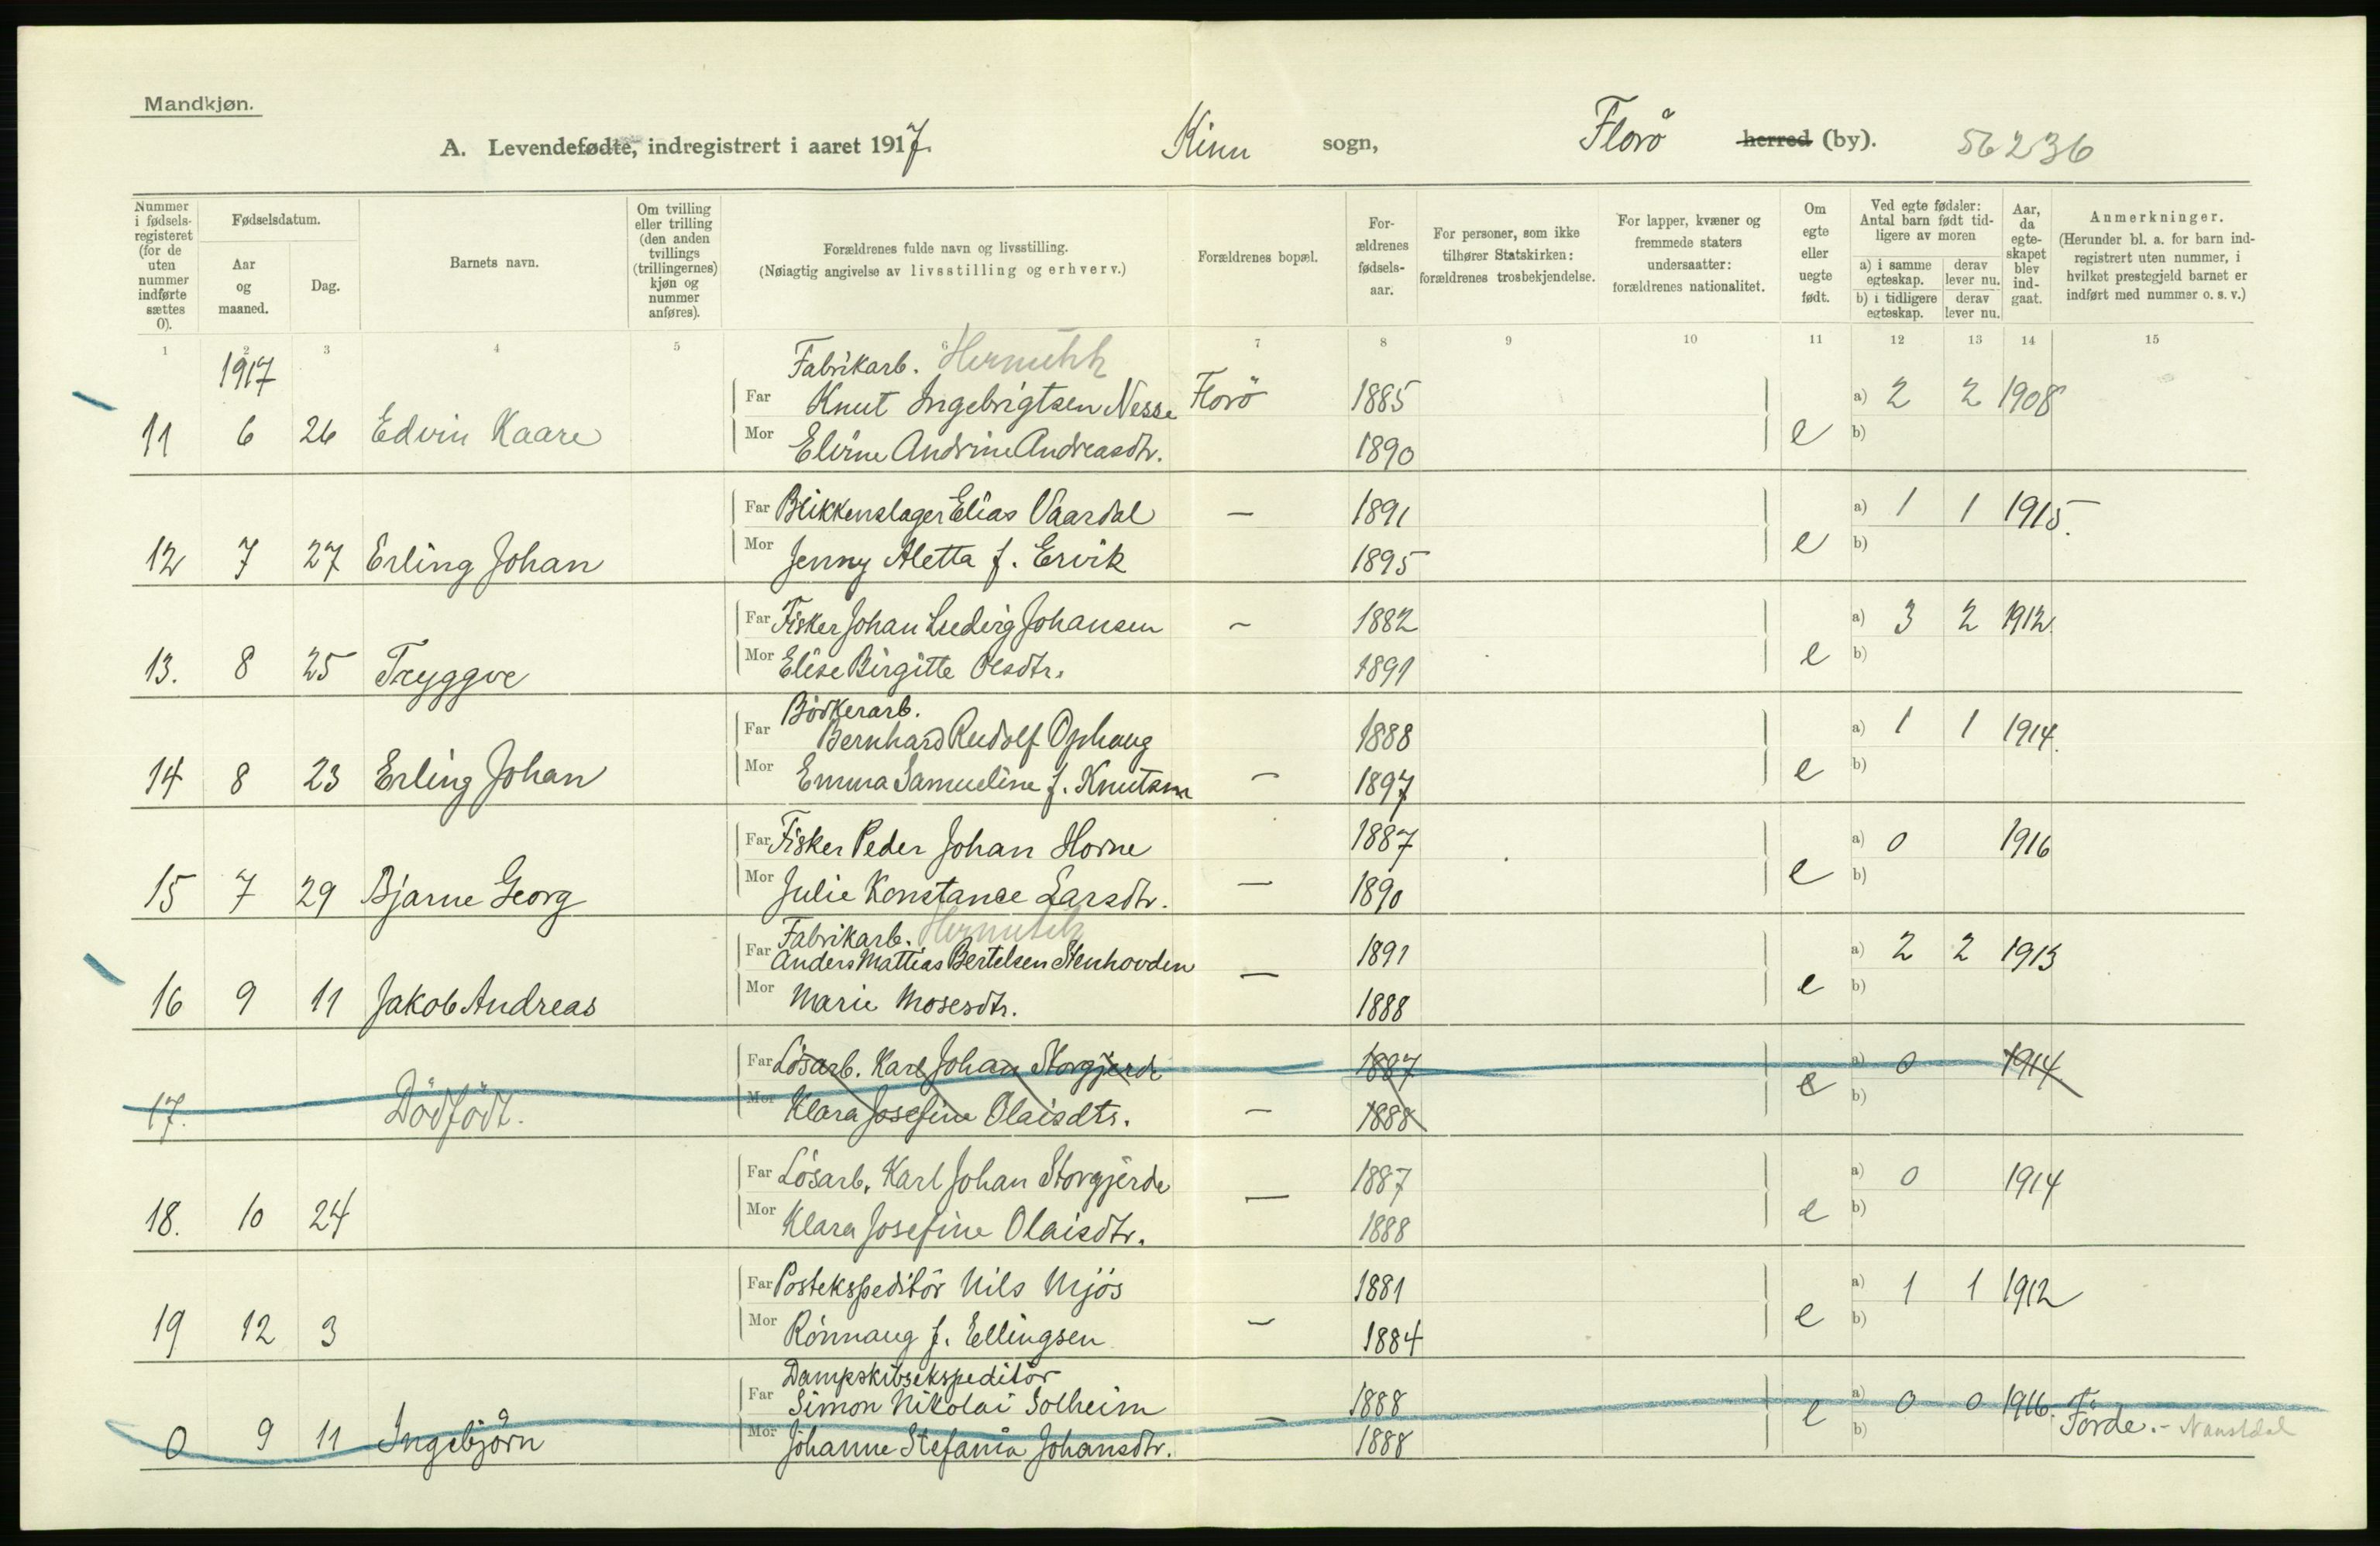 Mandkjøn.
A. Levendefødte, indregistrert i aaret 1917. Kinn sogn, Florö herred (by). 56236
Nummer i fødselsregisteret (for de uten nummer indførte sættes 0).
Fødselsdatum.
Aar og maaned.
Dag.
Barnets navn.
Om tvilling eller trilling (den anden tvillings (trillingernes) kjøn og nummer anføres).
Forældrenes fulde navn og livsstilling.
(Nøiagtig angivelse av livsstilling og erhverv.)
Forældrenes bopæl.
Forældrenes fødselsaar.
For personer, som ikke tilhører Statskirken: forældrenes trosbekjendelse.
For lapper, kvæner og fremmede staters undersaatter: forældrenes nationalitet.
Om egte eller uegte født.
Ved egte fødsler: Antal barn født tidligere av moren
a) i samme egteskap. derav lever nu.
b) i tidligere egteskap. derav lever nu.
Aar, da egteskapet blev indgaat.
Anmerkninger.
(Herunder bl. a. for barn indregistrert uten nummer, i hvilket prestegjeld barnet er indført med nummer o. s. v.)
1 2 3 4 5 6 7 8 9 10 11 12 13 14 15
1917
Fabrikarb. Hermetikk
Far Knut Ingebrigtsen Nesse Florö 1885 a) 2 2 1908
11 6 26 Edvin Kaare Mor Elvine Andrine Andreasdtr. 1890 e b)
Far Blikkenslager Elias Vaardal — 1891 a) 1 1 1915.
12 7 27 Erling Johan Mor Jenny Aletta f. Ervik 1895 e b)
Far Fisker Johan Ludvig Johansen — 1882 a) 3 2 1912.
13. 8 25 Tryggve Mor Elise Birgitte Olsdtr. 1891 e b)
Bödkerarb.
Far Bernhard Rudolf Ophaug 1888 a) 1 1 1914.
14 8 23 Erling Johan Mor Emma Samueline f. Knutsen — 1897 e b)
Far Fisker Peder Johan Horne 1887 a) 0 1916
15 7 29 Bjarne Georg Mor Julie Konstance Larsdtr. — 1890 e b)
Fabrikarb. Hermetikk
Far Anders Mattias Bertelsen Stenhovden — 1891 a) 2 2 1913
16 9 11 Jakob Andreas Mor Marie Mosesdtr. 1888 e b)
Far Lösarb. Karl Johan Storgjerde 1887 a) 0 1914
17. Dödfödt. Mor Klara Josefine Olaisdtr. — 1888 e b)
Far Lösarb. Karl Johan Storgjerde — 1887 a) 0 1914
18. 10 24 Mor Klara Josefine Olaisdtr. 1888 e b)
Far Postekspeditör Nils Mjös 1881 a) 1 1 1912
19 12 3 Mor Rönnaug f. Ellingsen — 1884 e b)
Dampskibsekspeditör
Far Simon Nikolai Solheim — 1888 e a) 0 0 1916. Förde. - Naustdal
0 9 11 Ingebjörn Mor Johanne Stefania Johansdtr. 1888 b)